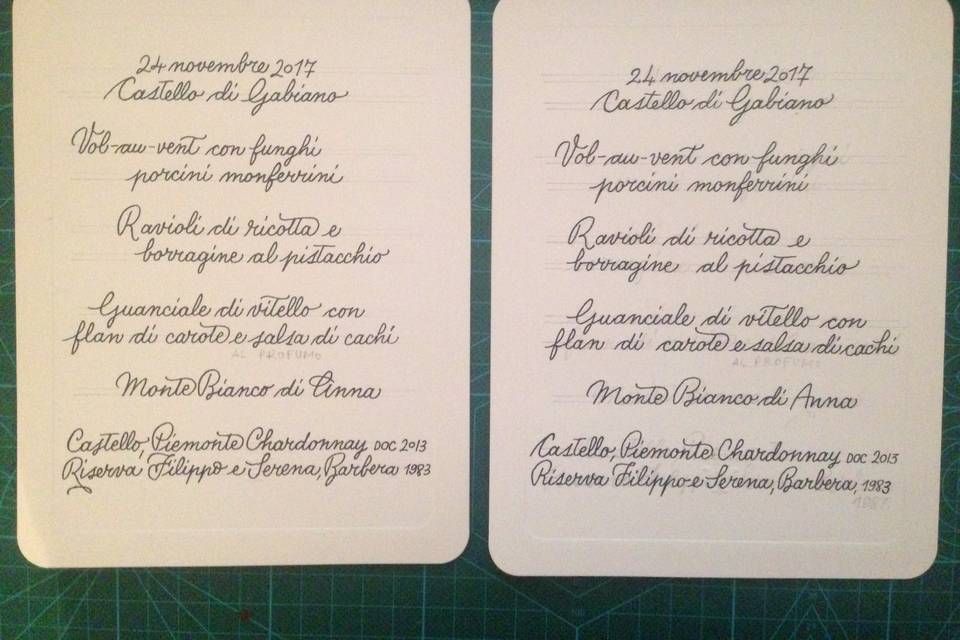 24 novembre 2017
Castello di Gabiano
Vol-au-vent con funghi
porcini monferrini
Ravioli di ricotta e
borragine al pistacchio
Guanciale di vitello con
flan di carote e salsa di cachi
AL PROFUMO
Monte Bianco di Anna
Castello, Piemonte Chardonnay DOC 2013
Riserva Filippo e Serena, Barbera 1983
24 novembre 2017
Castello di Gabiano
Vol-au-vent con funghi
porcini monferrini
Ravioli di ricotta e
borragine al pistacchio
Guanciale di vitello con
flan di carote e salsa di cachi
AL PROFUMO
Monte Bianco di Anna
Castello, Piemonte Chardonnay DOC 2013
Riserva Filippo e Serena, Barbera, 1983